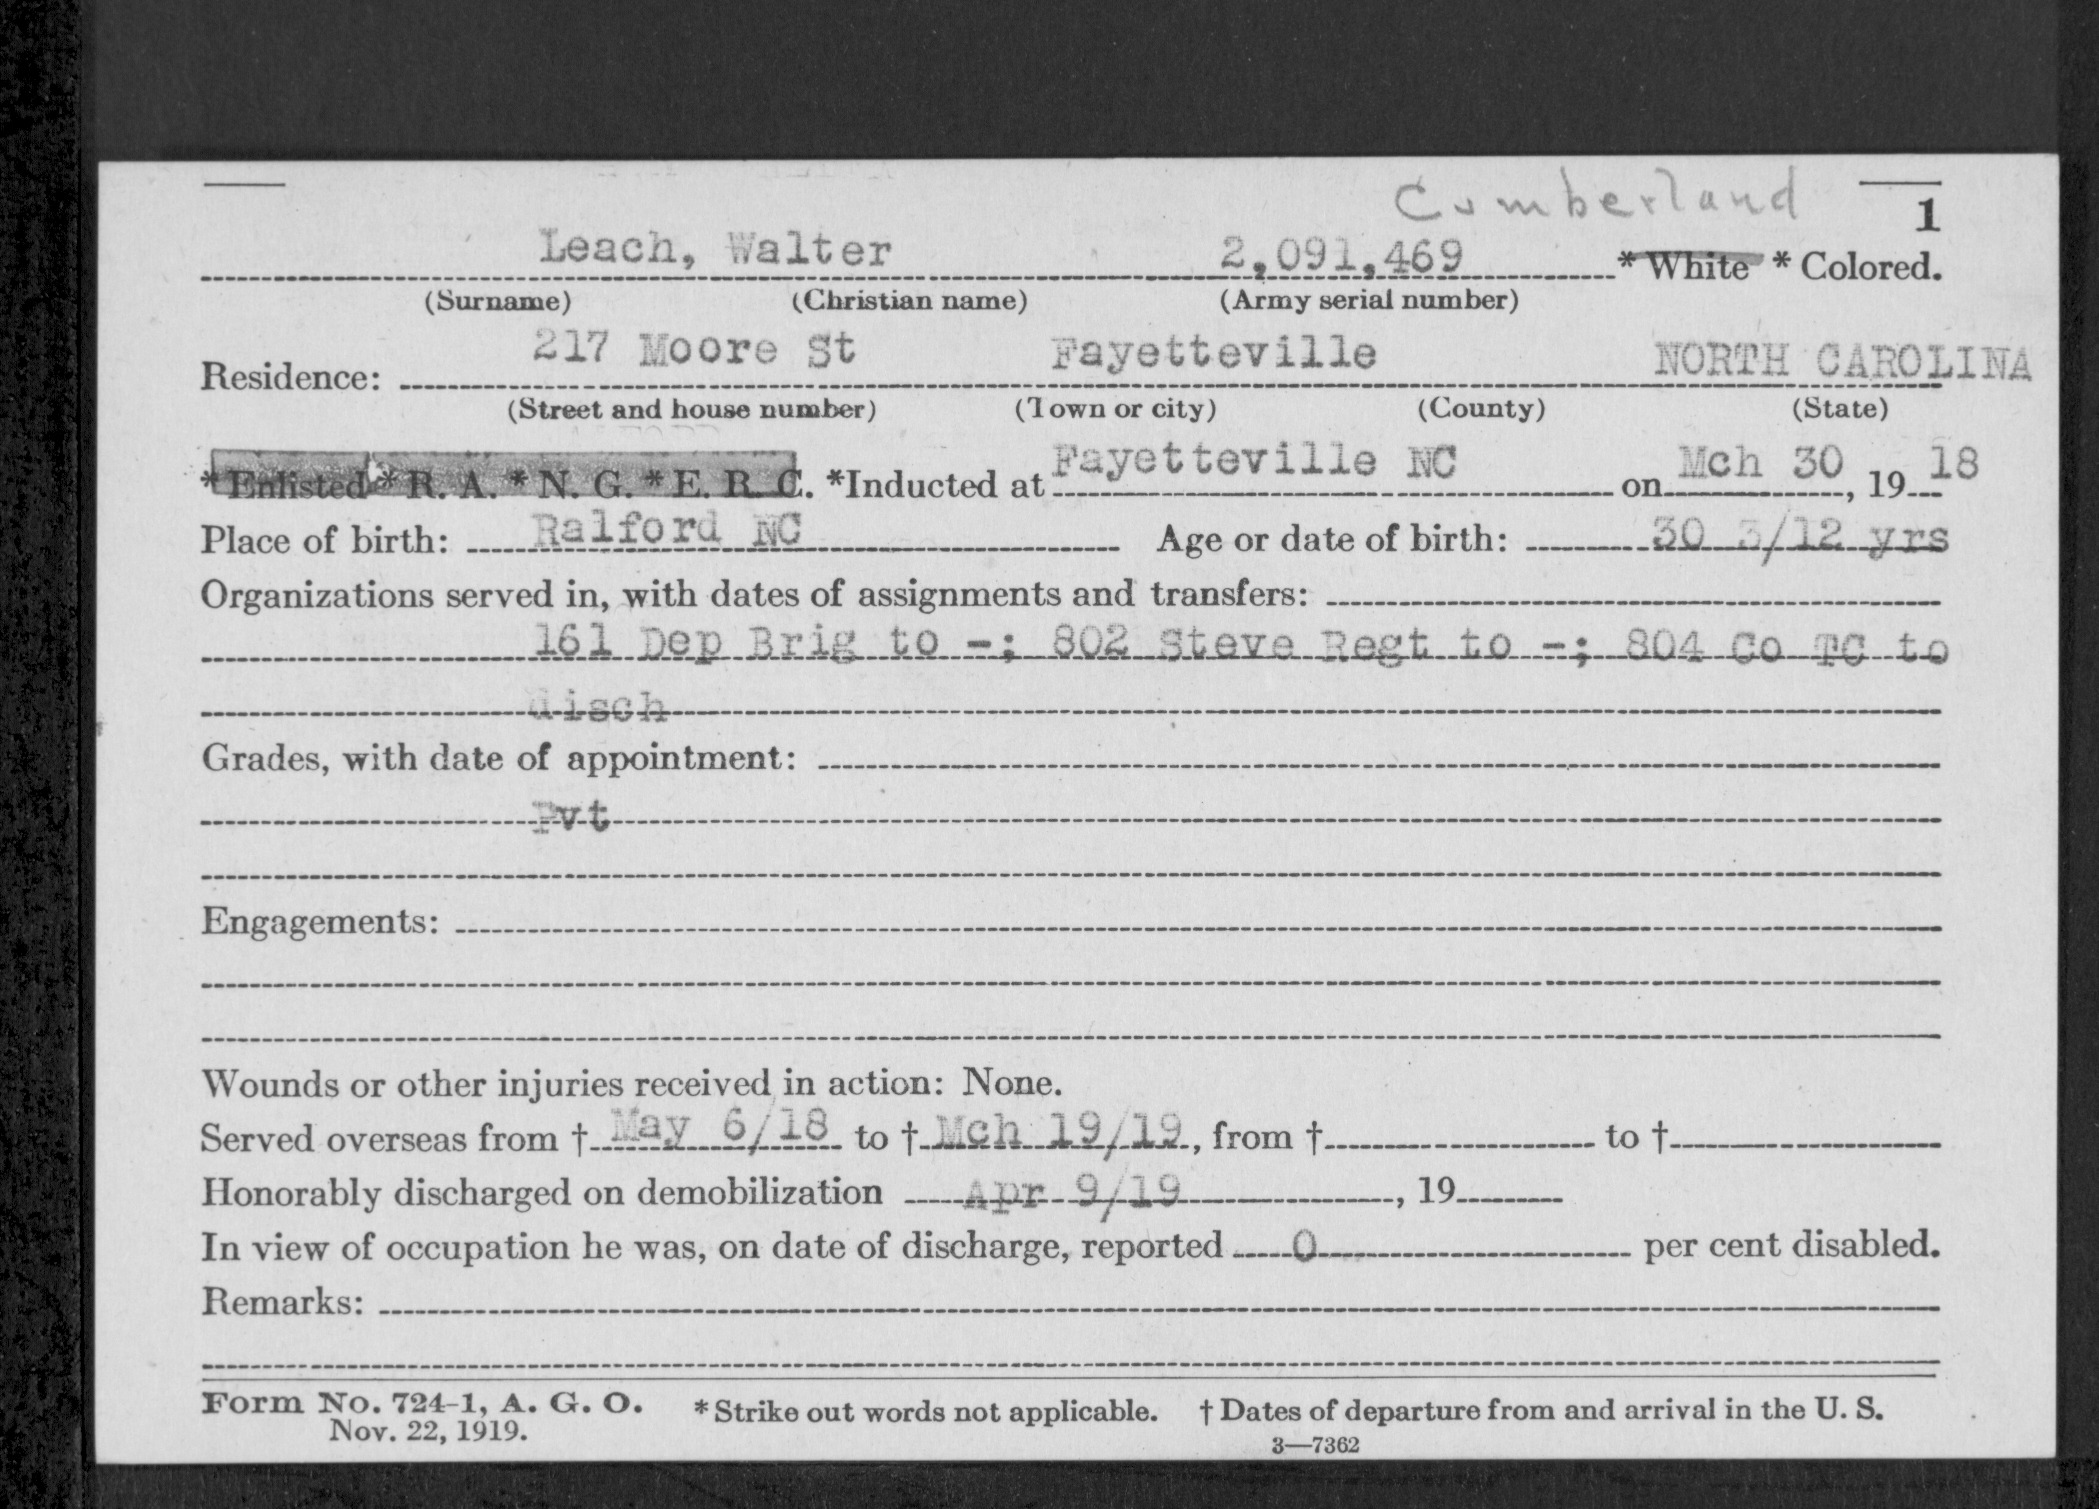 Cumberland
1
Leach, Walter 2,091,469 * White * Colored.
(Surname) (Christian name) (Army serial number)
Residence: 217 Moore St Fayetteville NORTH CAROLINA
(Street and house number) (Town or city) (County) (State)
* Enlisted * R. A. * N. G. * E. R. C. *Inducted at Fayetteville NC on Mch 30, 19 18
Place of birth: Ralford NC Age or date of birth: 30 3/12 yrs
Organizations served in, with dates of assignments and transfers:
161 Dep Brig to -; 802 Steve Regt to -; 804 Co TC to
disch
Grades, with date of appointment:
Pvt
Engagements:
Wounds or other injuries received in action: None.
Served overseas from † May 6/18 to † Mch 19/19, from † to †
Honorably discharged on demobilization Apr 9/19, 19
In view of occupation he was, on date of discharge, reported 0 per cent disabled.
Remarks:
Form No. 724-1, A. G. O. * Strike out words not applicable. † Dates of departure from and arrival in the U. S.
Nov. 22, 1919.
3—7362